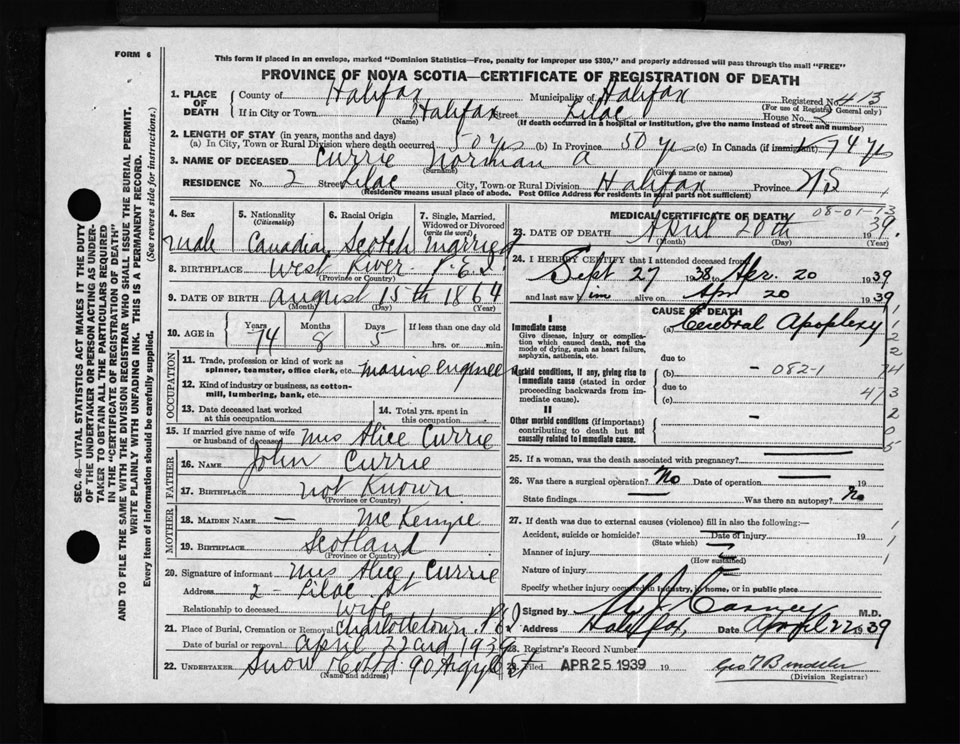 FORM 6
This form if placed in an envelope, marked "Dominion Statistics—Free, penalty for improper use $300," and properly addressed will pass through the mail "FREE"
PROVINCE OF NOVA SCOTIA—CERTIFICATE OF REGISTRATION OF DEATH
SEC. 46—VITAL STATISTICS ACT MAKES IT THE DUTY
OF THE UNDERTAKER OR PERSON ACTING AS UNDER-
TAKER TO OBTAIN ALL THE PARTICULARS REQUIRED
IN THE "CERTIFICATE OF REGISTRATION OF DEATH"
AND TO FILE THE SAME WITH THE DIVISION REGISTRAR WHO SHALL ISSUE THE BURIAL PERMIT.
WRITE PLAINLY WITH UNFADING INK. THIS IS A PERMANENT RECORD.
Every item of information should be carefully supplied. (See reverse side for instructions.)
1. PLACE OF DEATH
County of Halifax Municipality of Halifax Registered No. 413
(For use of Registrar General only)
If in City or Town, Halifax Street Lilac House No. 2
(Name) (If death occurred in a hospital or institution, give the name instead of street and number)
2. LENGTH OF STAY (in years, months and days)
(a) In City, Town or Rural Division where death occurred 50 yrs (b) In Province 50 yrs (c) In Canada (if immigrant) 74 yrs
3. NAME OF DECEASED Currie Norman A
(Surname) (Given name or names)
RESIDENCE No. 2 Street Lilac City, Town or Rural Division Halifax Province N.S
(Residence means usual place of abode. Post Office Address for Rural parts not sufficient)
4. Sex 5. Nationality (Citizenship) 6. Racial Origin 7. Single, Married, Widowed or Divorced (write the word)
male Canadian Scotch married
8. BIRTHPLACE West River P.E.I.
(Province or Country)
9. DATE OF BIRTH August 15th 1864
(Month) (Day) (Year)
10. AGE in Years Months Days If less than one day old
74 8 5 hrs. or min.
OCCUPATION
11. Trade, profession or kind of work as spinner, teamster, office clerk, etc. marine engineer
12. Kind of industry or business, as cotton-mill, lumbering, bank, etc.
13. Date deceased last worked at this occupation
14. Total yrs. spent in this occupation
15. If married give name of wife or husband of deceased Mrs Alice Currie
FATHER
16. NAME John Currie
17. BIRTHPLACE not Known
(Province or Country)
MOTHER
18. MAIDEN NAME — McKenzie
19. BIRTHPLACE Scotland
(Province or Country)
20. Signature of informant Mrs Alice Currie
Address 2 - Lilac St
Relationship to deceased wife
21. Place of Burial, Cremation or Removal Charlottetown P.E.I
Date of burial or removal April 22nd 1939
22. UNDERTAKER Snow & Co Ltd. 90 Argyle St
(Name and address)
MEDICAL CERTIFICATE OF DEATH
08-01-13
23. DATE OF DEATH April 20th 1939.
(Month) (Day) (Year)
24. I HEREBY CERTIFY that I attended deceased from
Sept 27 1938 to Apr. 20 1939
and last saw him alive on Apr 20 1939
CAUSE OF DEATH
I
Immediate cause
Give disease, injury or complication which caused death, not the mode of dying, such as heart failure, asphyxia, asthenia, etc.
(a) Cerebral Apoplexy
due to
Morbid conditions, if any, giving rise to immediate cause (stated in order proceeding backwards from immediate cause).
(b) - 082-1
due to
(c) 473
II
Other morbid conditions (if important) contributing to death but not causally related to immediate cause.
25. If a woman, was the death associated with pregnancy? —
26. Was there a surgical operation? No Date of operation — 19
State findings — Was there an autopsy? No
27. If death was due to external causes (violence) fill in also the following:—
Accident, suicide or homicide? Date of injury 19
(State which)
Manner of injury
(How sustained)
Nature of injury
Specify whether injury occurred in industry, in home, or in public place
Signed by Carney M.D.
Address Halifax, Date April 22 1939
28. Registrar's Record Number
29. Filed APR 25 1939 19
(Division Registrar)